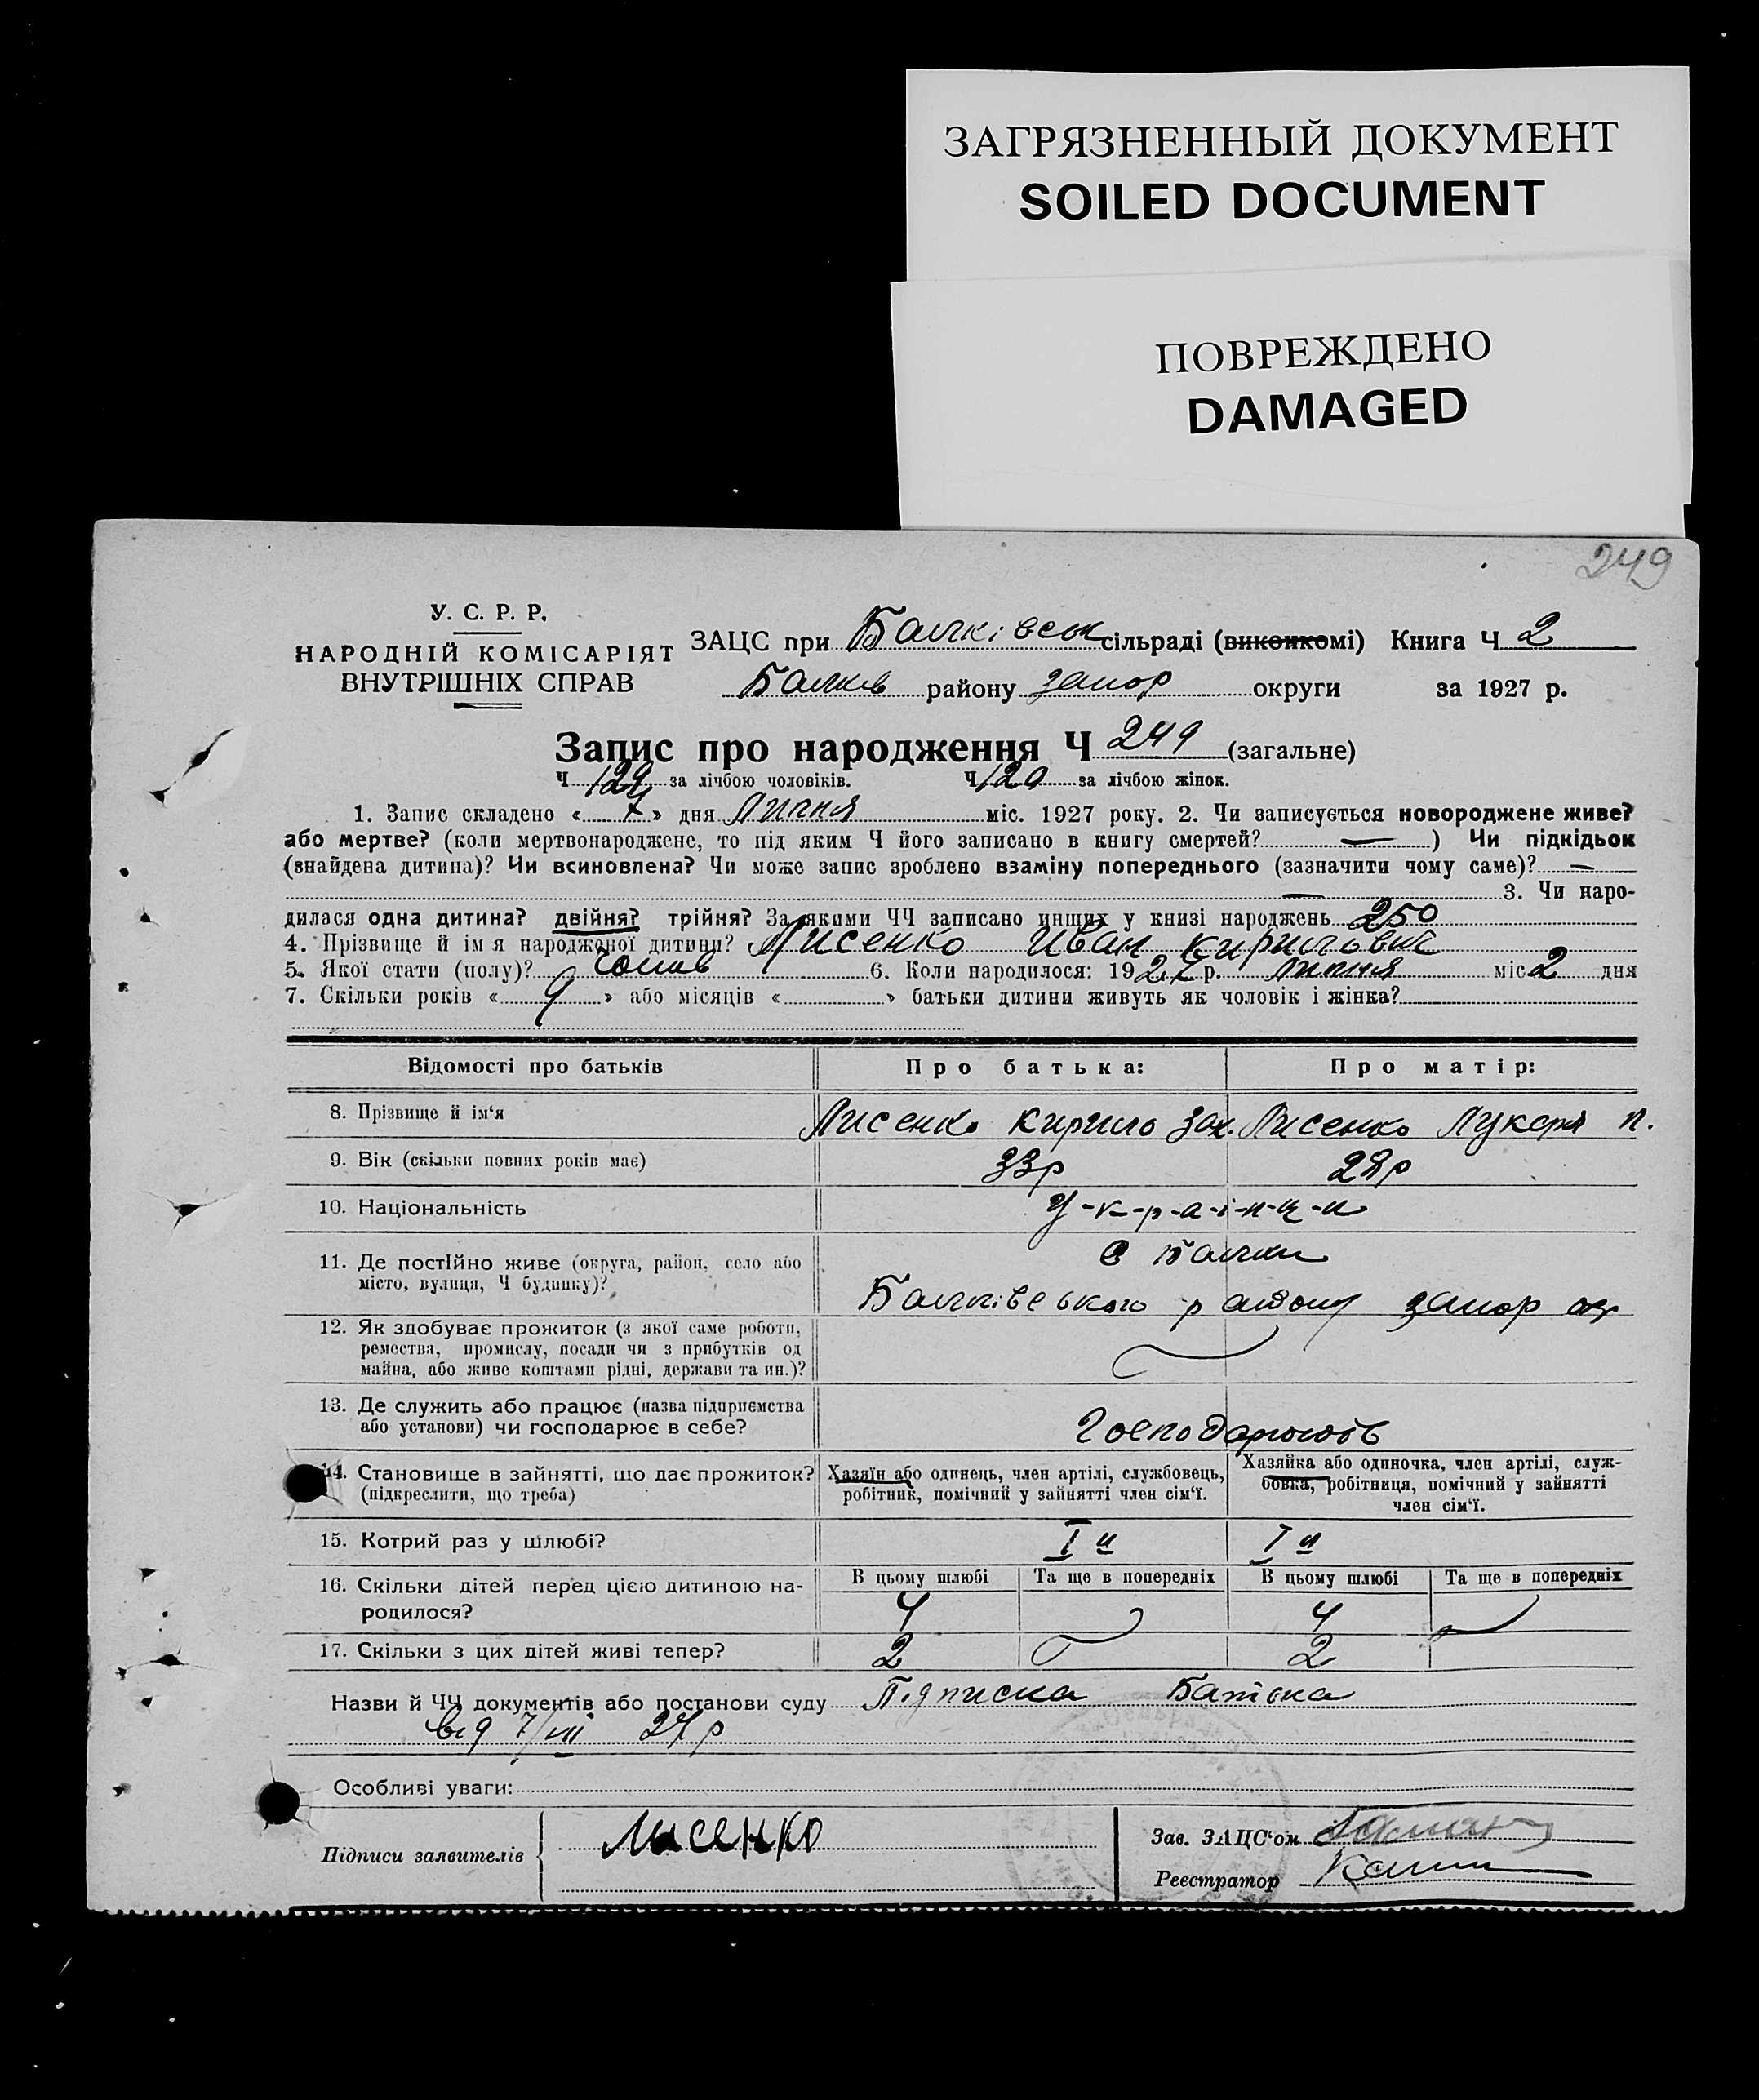 ЗАГРЯЗНЕННЫЙ ДОКУМЕНТ
SOILED DOCUMENT
ПОВРЕЖДЕНО
DAMAGED
249
У. С. Р. Р.
НАРОДНІЙ КОМІСАРІЯТ
ВНУТРІШНІХ СПРАВ
ЗАЦС при Балківськ сільраді (виконкомі) Книга Ч 2
Балків району запор округи за 1927 р.
Запис про народження Ч 249 (загальне)
Ч 129 за лічбою чоловіків. Ч 120 за лічбою жінок.
1. Запис складено « 7 » дня Липня міс. 1927 року. 2. Чи записується новороджене живе?
або мертве? (коли мертвонароджене, то під яким Ч його записано в книгу смертей? — ) Чи підкідьок
(знайдена дитина)? Чи всиновлена? Чи може запис зроблено взаміну попереднього (зазначити чому саме)? —
— 3. Чи наро-
дилася одна дитина? двійня? трійня? За якими ЧЧ записано инших у книзі народжень 250
4. Прізвище й ім я народженої дитини? Лисенко Иван Кирилович
5. Якої стати (полу)? 6. Коли народилося: 1927 р. липня міс 2 дня
7. Скільки років « 9 » або місяців « » батьки дитини живуть як чоловік і жінка?
Відомості про батьків Про батька: Про матір:
8. Прізвище й ім'я Лисенко Кирило Зах. Лисенко Лукеря П.
9. Вік (скільки повних років має) 33р 28р
10. Національність У-к-р-а-ї-н-ц-и
11. Де постійно живе (округа, район, село або місто, вулиця, Ч будинку)? С Балки
Балківського району запор окр
12. Як здобуває прожиток (з якої саме роботи,
ремества, промислу, посади чи з прибутків од
майна, або живе коштами рідні, держави та ин.)?
13. Де служить або працює (назва підприємства
або установи) чи господарює в себе? Господарюють
14. Становище в зайнятті, що дає прожиток?
(підкреслити, що треба)
Хазяїн або одинець, член артілі, службовець,
робітник, помічний у зайнятті член сім'ї.
Хазяйка або одиночка, член артілі, служ-
бовка, робітниця, помічний у зайнятті
член сім'ї.
15. Котрий раз у шлюбі? I й I й
16. Скільки дітей перед цією дитиною на-
родилося?
В цьому шлюбі Та ще в попередніх В цьому шлюбі Та ще в попередніх
4 4
17. Скільки з цих дітей живі тепер? 2 2
Назви й ЧЧ документів або постанови суду Підписка Батька
від 7/VII 27 р
Особливі уваги:
Підписи заявителів Лисенко
Зав. ЗАЦС'ом
Реєстратор